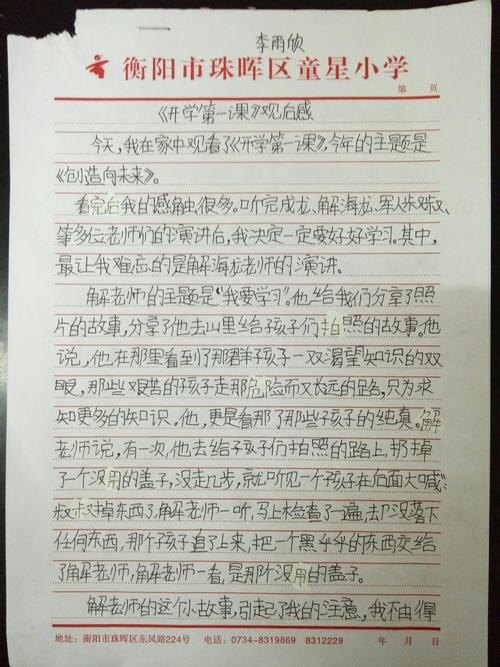 李雨欣
衡阳市珠晖区童星小学
第 页
《开学第一课》观后感
今天，我在家中观看了《开学第一课》，今年的主题是
《创造向未来》。
看完后我的感触很多。听完成龙、解海龙、军人叔叔、
等多位老师们的演讲后，我决定一定要好好学习。其中，
最让我难忘的是解海龙老师的演讲。
解老师的主题是“我要学习”。他给我们分享了照
片的故事，分享了他去山里给孩子们拍照的故事。他
说，他在那里看到了那群孩子一双渴望知识的双
眼，那些艰苦的孩子走那危险而又长远的路，只为求
知更多的知识。他，更是看那了那些孩子的纯真。解
老师说，有一次，他去给孩子们拍照的路上，扔掉
了一个没用的盖子，没走几步，就听见一个孩子在后面大喊“
叔叔掉东西了，解老师一听，马上检查了一遍，却没落下
任何东西，那个孩子追了上来，把一个黑乎乎的东西交给
了解老师，解老师一看，是那个没用的盖子。
解老师的这个小故事，引起了我的注意，我不由得
地址：衡阳市珠晖区东风路224号 电话：0734-8319869 8312229 年 月 日